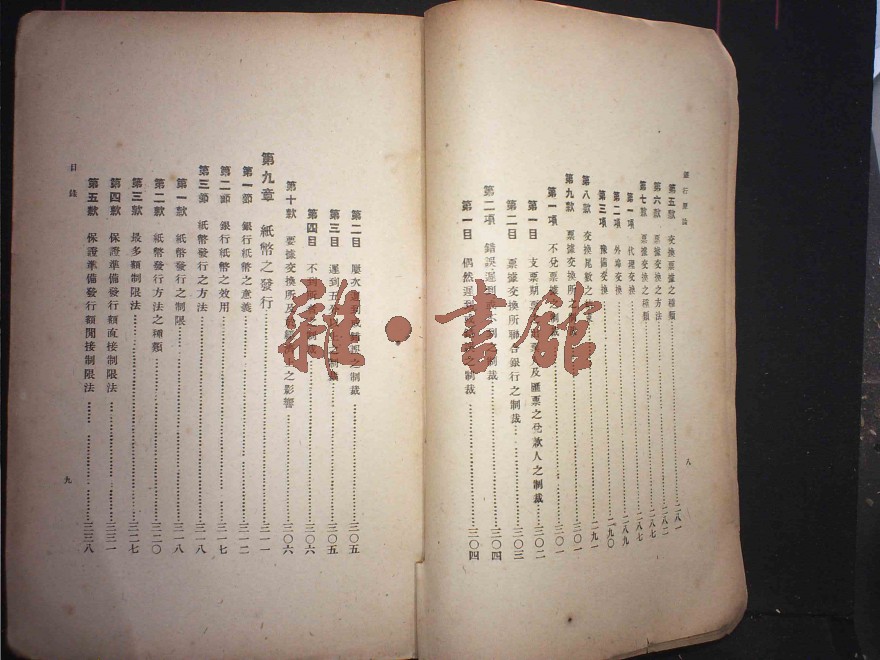 銀行原論
第五款 交換票據之種類 二八一
第六款 票據交換之方法 二八二
第七款 票據交換之種類 二八七
第一項 代理交換 二八七
第二項 外埠交換 二八九
第三項 預備交換 二九〇
第八款 交換尾數之 二九一
第九款 票據交換所之 三〇一
第一項 不兌票據之制裁 三〇一
第一目 支票期票 及匯票之兌款人之制裁 三〇二
第二目 票據交換所聯合銀行之制裁 三〇三
第二項 錯誤遲到 不到 制裁 三〇四
第一目 偶然遲到 之制裁 三〇四
八
第二目 屢次遲到或錯誤之制裁 三〇五
第三目 遲到五 三〇五
第四目 不到所 三〇六
第十款 票據交換所及 之影響 三〇六
第九章 紙幣之發行 三一一
第一節 銀行紙幣之意義 三一二
第二節 銀行紙幣之效用 三一七
第三節 紙幣發行之方法 三一八
第一款 紙幣發行之制限 三一八
第二款 紙幣發行方法之種類 三二〇
第三款 最多額制限法 三二七
第四款 保證準備發行額直接制限法 三三一
第五款 保證準備發行額間接制限法 三三八
目錄
九
雜·書館